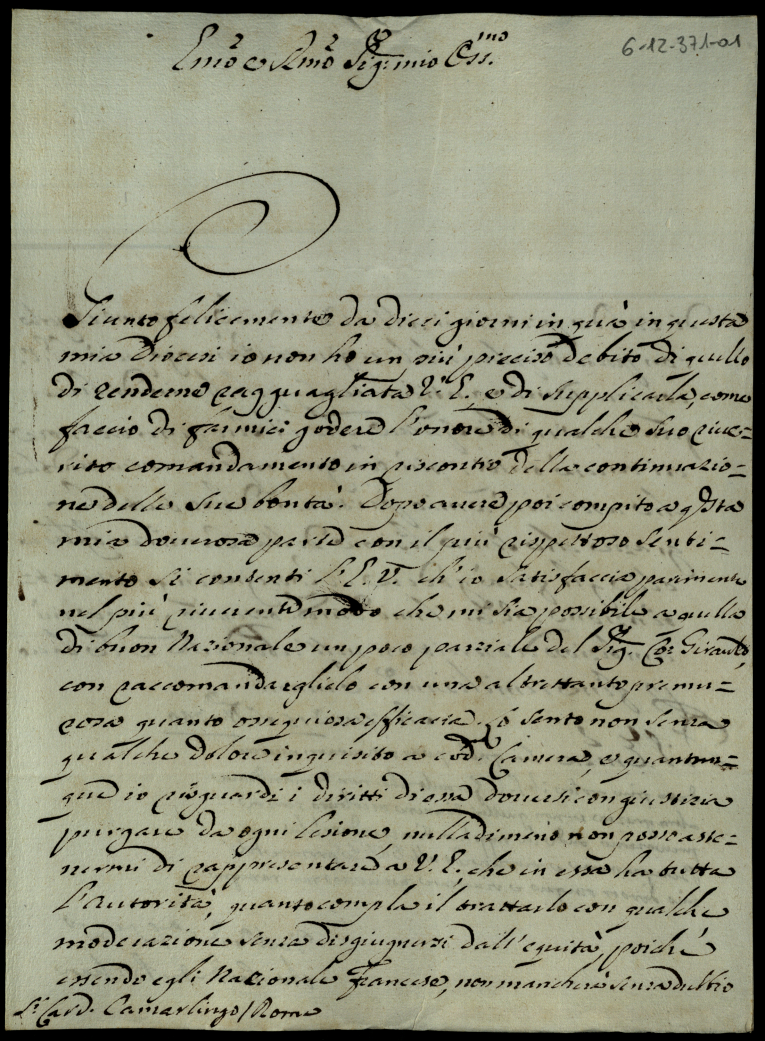 6-12-371-01
Emõ e Rmõ Sig.r mio Oss.mo
Giunto felicemente da dieci giorni in quà in questa
mia Diocesi io non ho un più preciso debito di quello
di renderne ragguagliata V.E., e di supplicarla, come
faccio di farmici godere l'onore di qualche suo rive=
rito comandamento in riscontro della continuazio=
ne delle sue bontà. Dopo avere poi compito a q.sta
mia doverosa parte con il più rispettoso senti=
mento si contenti l'E.V. ch'io satisfaccia parimente
nel più riverente modo che mi sia possibile a quella
di buon Nazionale un poco parziale del Sig.r Giraud,
con raccomandarglielo con una altrettanto premu=
rosa quanto ossequiosa efficacia. Lo sento non senza
qualche dolore inquisito a cod.a Camera, e quantun=
que io riguardi i diritti di essa doversi con giustizia
purgare da ogni lesione, nulladimeno non posso aste=
nermi di rappresentare a V.E., che in essa ha tutta
l'Autorità, quanto compla il trattarlo con qualche
moderazione senza disgiugnersi dall'equità, poiché
essendo egli Nazionale Francese, non mancherà senza dubbio
S.r Card. Camarlingo / Roma